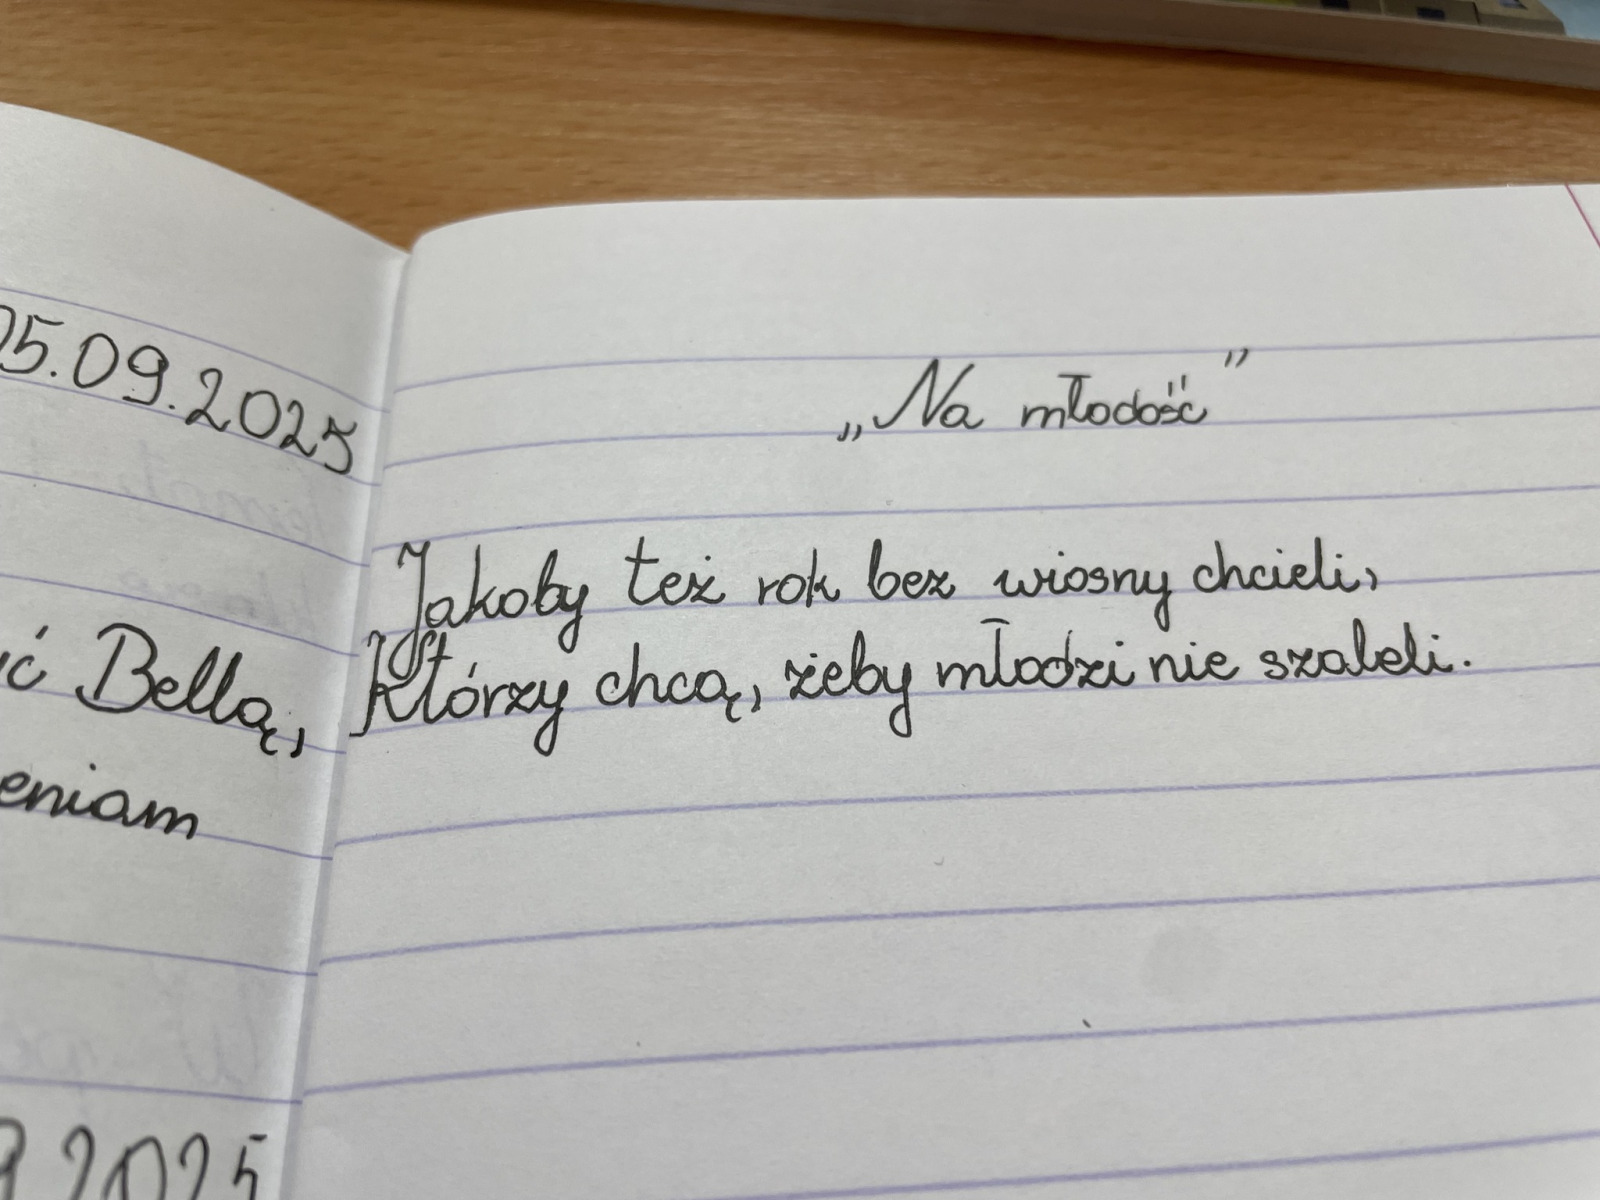 05.09.2025
ić Bellą,
eniam
9.2025
„Na młodość”
Jakoby też rok bez wiosny chcieli,
Którzy chcą, żeby młodzi nie szaleli.